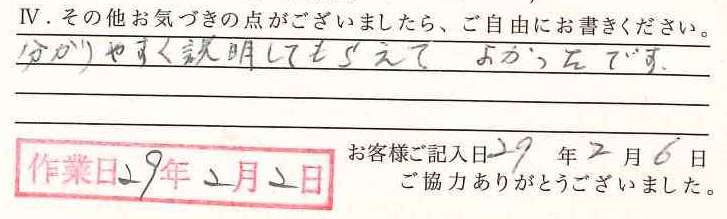 Ⅳ．その他お気づきの点がございましたら、ご自由にお書きください。
分かりやすく説明してもらえて よかったです.
お客様ご記入日29年2月6日
作業日29年2月2日
ご協力ありがとうございました。